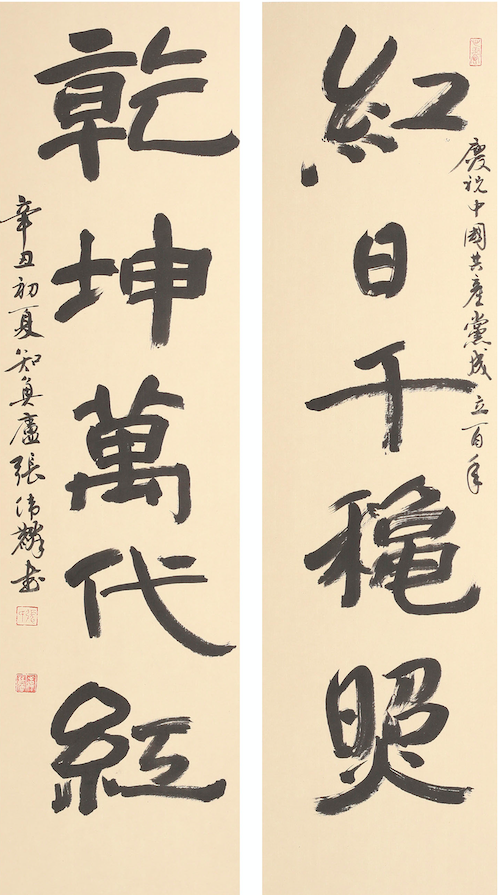 慶祝中國共產黨成立百年
紅日千穐照
乾坤萬代紅
辛丑初夏知廬張偉麟書